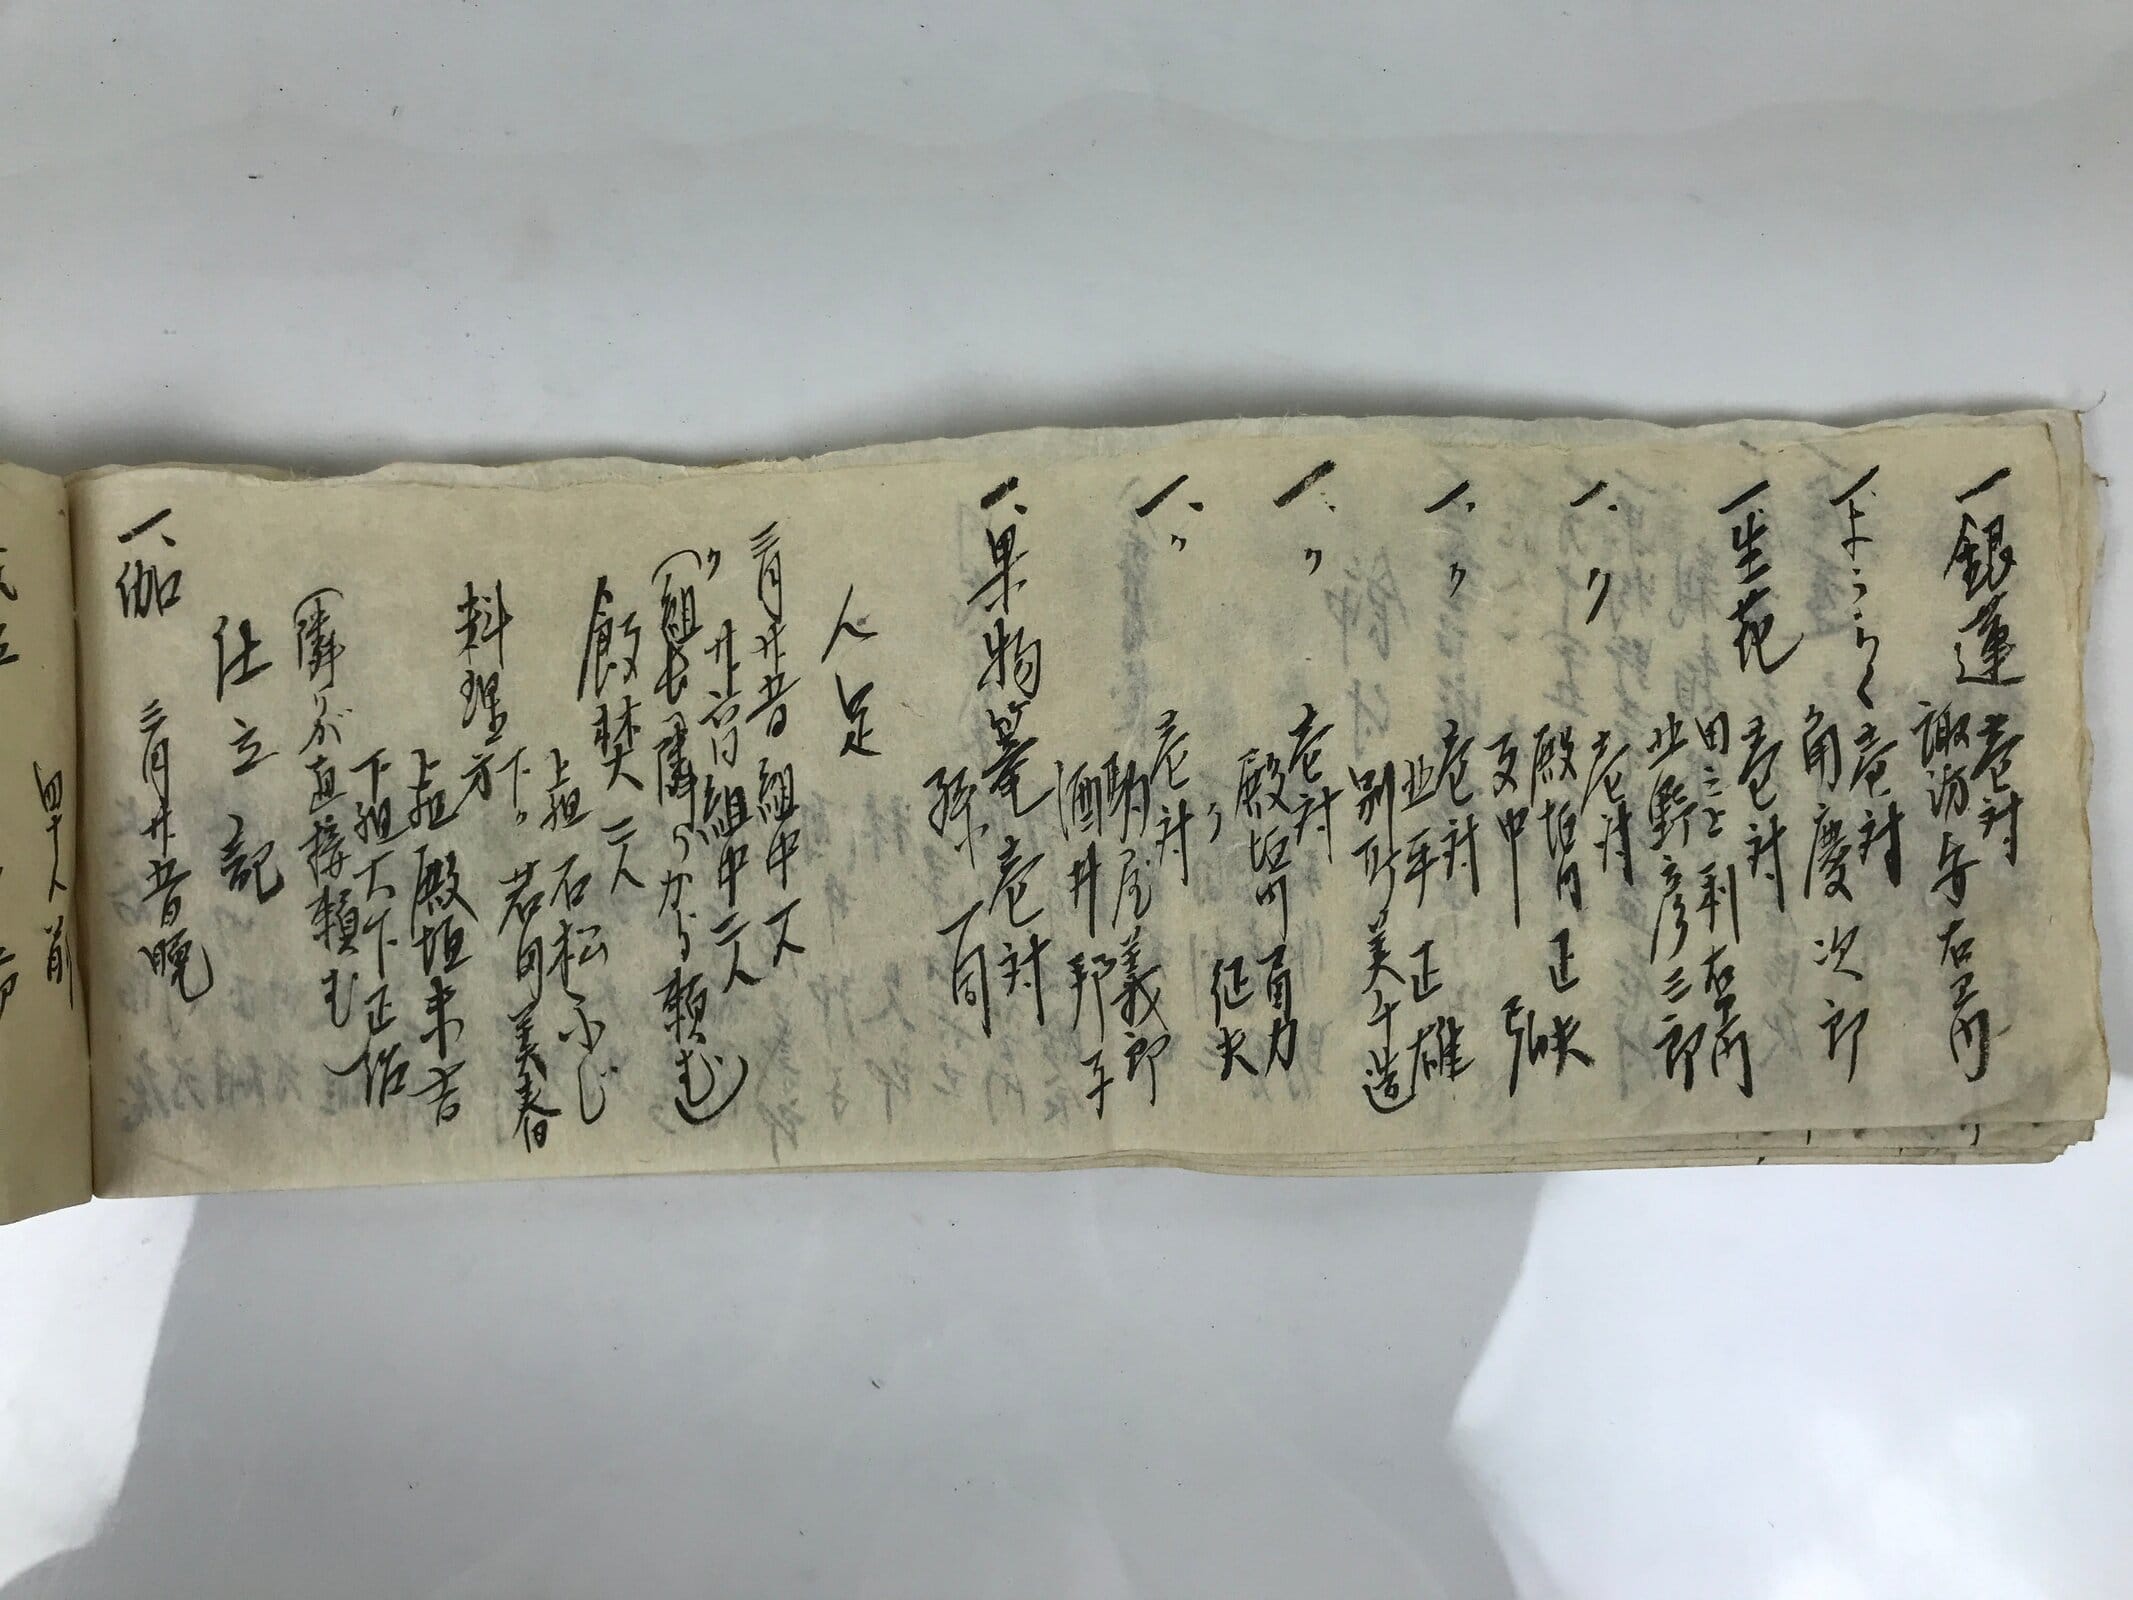 一銀蓮 壱対
諏訪与右ヱ門
一ようらく 壱対
角慶次郎
一生花 壱対
田こと利右ヱ門
北野彦三郎
一、〃 壱対
殿垣内 正夫
支中 弘
一、〃 壱対
北平 正雄
別所美千造
一、〃 壱対
殿垣内 冨力
〃 征夫
一、〃 壱対
駒屋義郎
酒井邦子
一、果物篭 壱対
孫一同
人足
三月廿四日 組中 一人
〃 廿五日 組中 二人
(組長隣りから頼む)
飯焚 二人
上組 石松ふじ
下〃 岩田美春
料理方
上組 殿垣末吉
下組 大下正信
(隣りが直接頼む
仕立記
一、伽 三月廿四日晩
四十人前